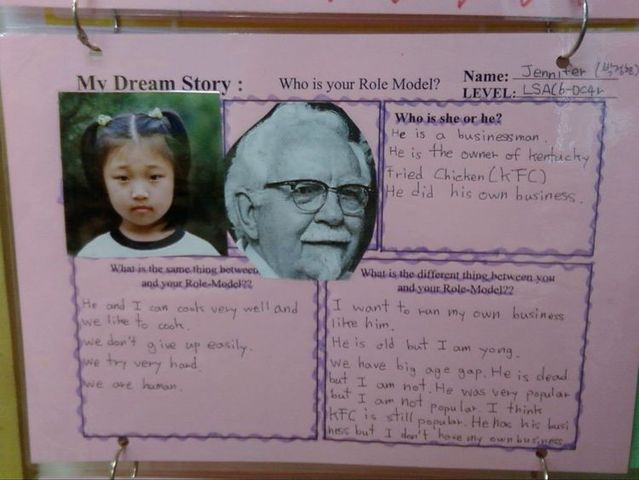 My Dream Story :
Who is your Role Model?
Name: Jennifer
LEVEL:
Who is she or he?
He is a businessman.
He is the owner of kentucky
Fried Chicken (KFC)
He did his own business.
What is the same thing between
and your Role-Model??
He and I can cook very well and
we like to cook.
we don't give up easily.
we try very hard.
we are human.
What is the different thing between you
and your Role-Model??
I want to run my own business
like him.
He is old but I am yong.
we have big age gap. He is dead
but I am not. He was very popular
but I am not popular. I think
KFC is still popular. He has his busi
ness but I don't have my own business